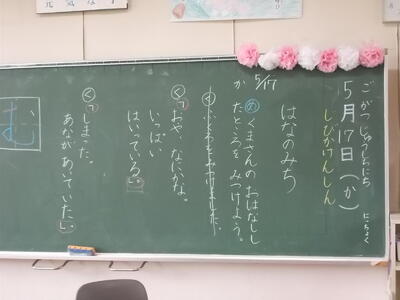 元気な
ごがつじゅうしちにち
5月17日(か)
にっちょく
しびかけんしん
5/17
か
はなのみち
め くまさんのおはなしし
たところを みつけよう。
く「おや、なにかな。
いっぱい
はいっている。」
く「しまった。
あながあいていた。」
む